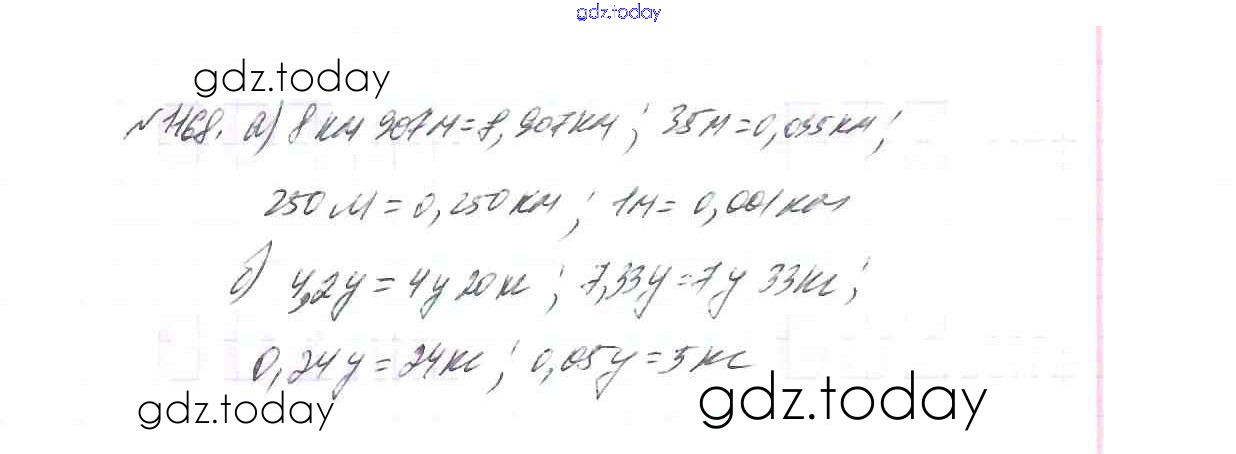 gdz.today
gdz.today
№1168. а) 8 км 907 м = 8,907 км; 35 м = 0,035 км;
250 м = 0,250 км; 1 м = 0,001 км
б) 4,2 ц = 4 ц 20 кг; 7,33 ц = 7 ц 33 кг;
0,24 ц = 24 кг; 0,05 ц = 5 кг
gdz.today gdz.today